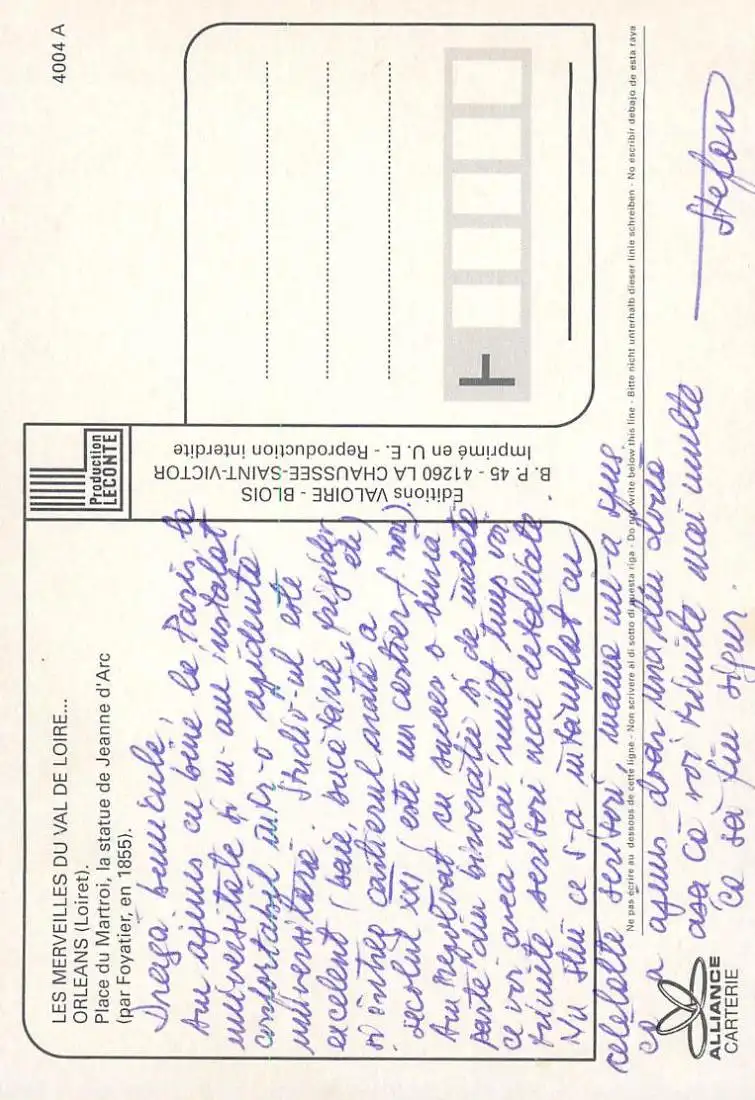 LES MERVEILLES DU VAL DE LOIRE...
ORLEANS (Loiret).
Place du Martroi, la statue de Jeanne d'Arc
(par Foyatier, en 1855).
4004 A
Draga
Am ajuns cu bine la Paris, la
universitate și m-am instalat
confortabil într-o rezidență
universitară. Studio-ul este
excelent (baie, bucătărie, frigider etc)
și întreg cartierul arată a
secolul XXI (este un cartier nou).
Am rezolvat cu succes o bună
parte din birocratie si de îndată
ce voi avea mai mult timp voi
trimite scrisori mai detaliate
Nu știu ce s-a întâmplat cu
celelalte scrisori mama mi-a spus
că a ajuns doar una din
așa că voi trimite mai multe
ca să fiu sigur.
Stefan
Production
LECONTE
Editions VALOIRE - BLOIS
B. P. 45 - 41260 LA CHAUSSEE-SAINT-VICTOR
Imprimé en U. E. - Reproduction interdite
T
Ne pas écrire au dessous de cette ligne - Non scrivere al di sotto di questa riga - Do not write below this line - Bitte nicht unterhalb dieser linie schreiben - No escribir debajo de esta raya
ALLIANCE
CARTERIE